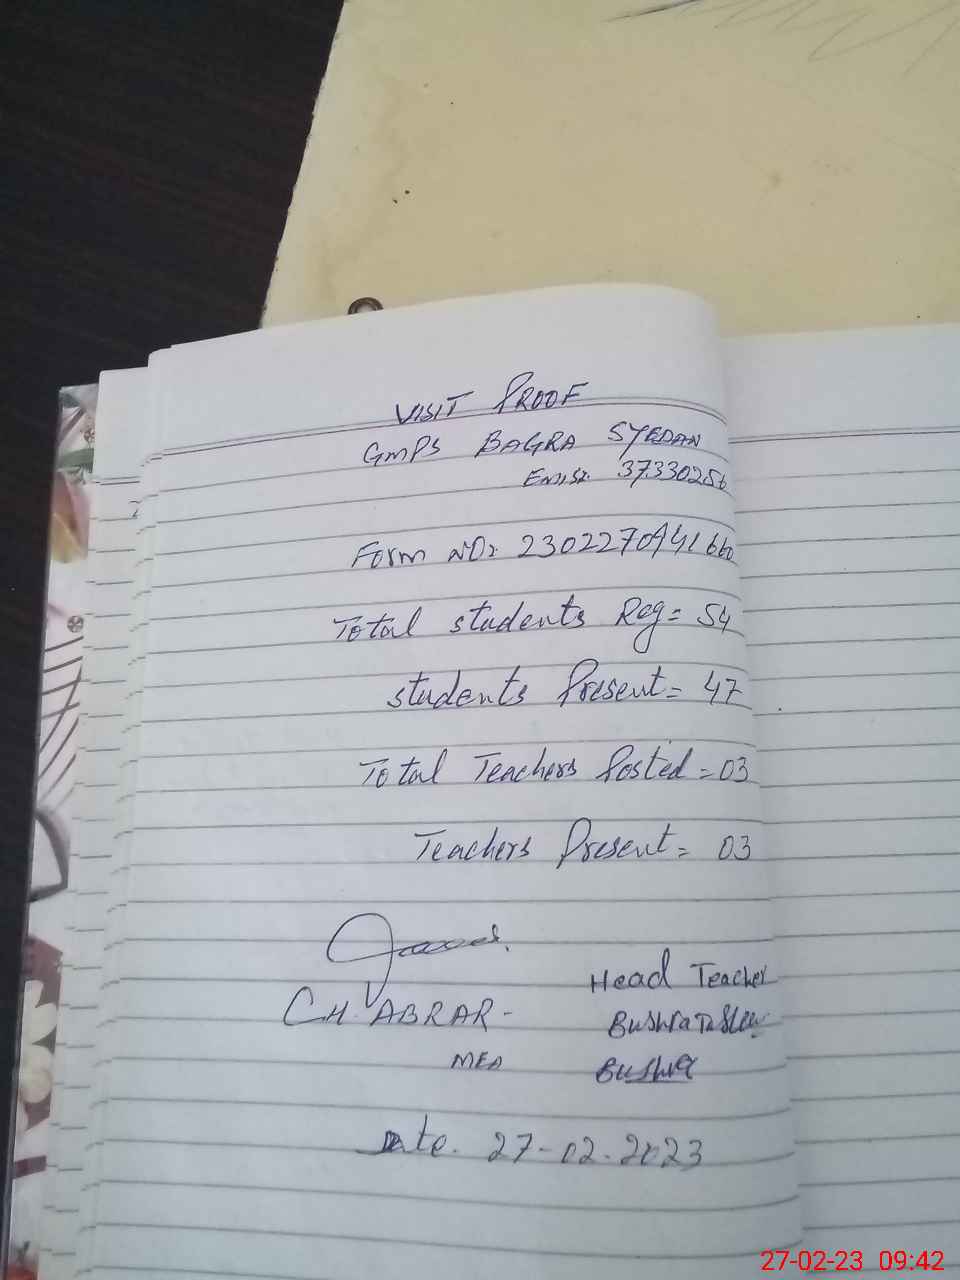 VISIT PROOF
GMPS BAGRA SYEDAN
EMIS: 37330256
Form NO: 2302270A41660
Total students Reg = 54
students Present = 47
Total Teachers Posted = 03
Teachers Present = 03
CH. ABRAR -
MEA
Head Teacher
Bushra
Bushra
Date. 27-02-2023
27-02-23 09:42